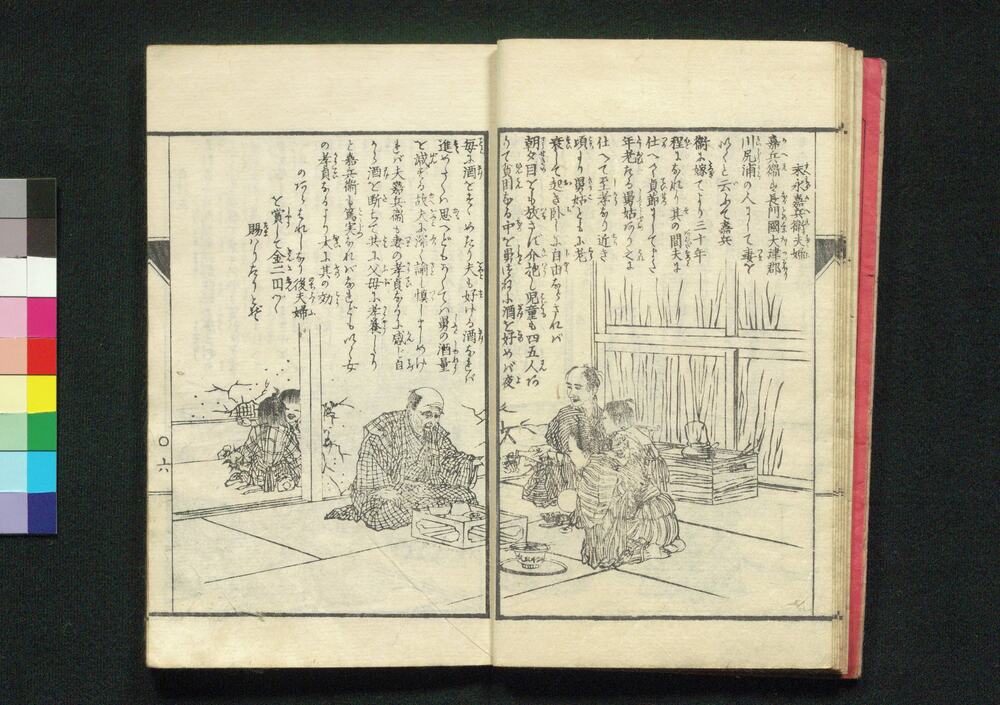 末永嘉兵衛夫婦
嘉兵衛ハ長門國大津郡
川尻浦の人にして妻を
いくと云ふそ嘉兵
衛に嫁てより三十年
程になれり其の間夫に
仕へて貞節にしてまた
年老たる舅姑ありこれに
仕へて至孝なり近き
頃より舅姑ともに老
衰して起き臥しも自由ならざれバ
朝夕目をも放さず介抱し児童も四五人あ
りて貧困なる中に舅ハつねに酒を好めバ夜
毎に酒をすゝめたり夫も好ける酒なれバ
進めまくハ思へどもかくてハ舅の酒量
を減ずる故夫に深く諭し慎ましめけ
れバ夫嘉兵衛も妻の孝貞なるに感じ自
から酒を断ちて共に父母に孝養したり
と嘉兵衛も篤実なれバなれどもいく女
の孝貞なるより夫に其の効
のあらはれしなり後夫婦
を賞して金二円づゝ
賜ハりたりとぞ
〇六